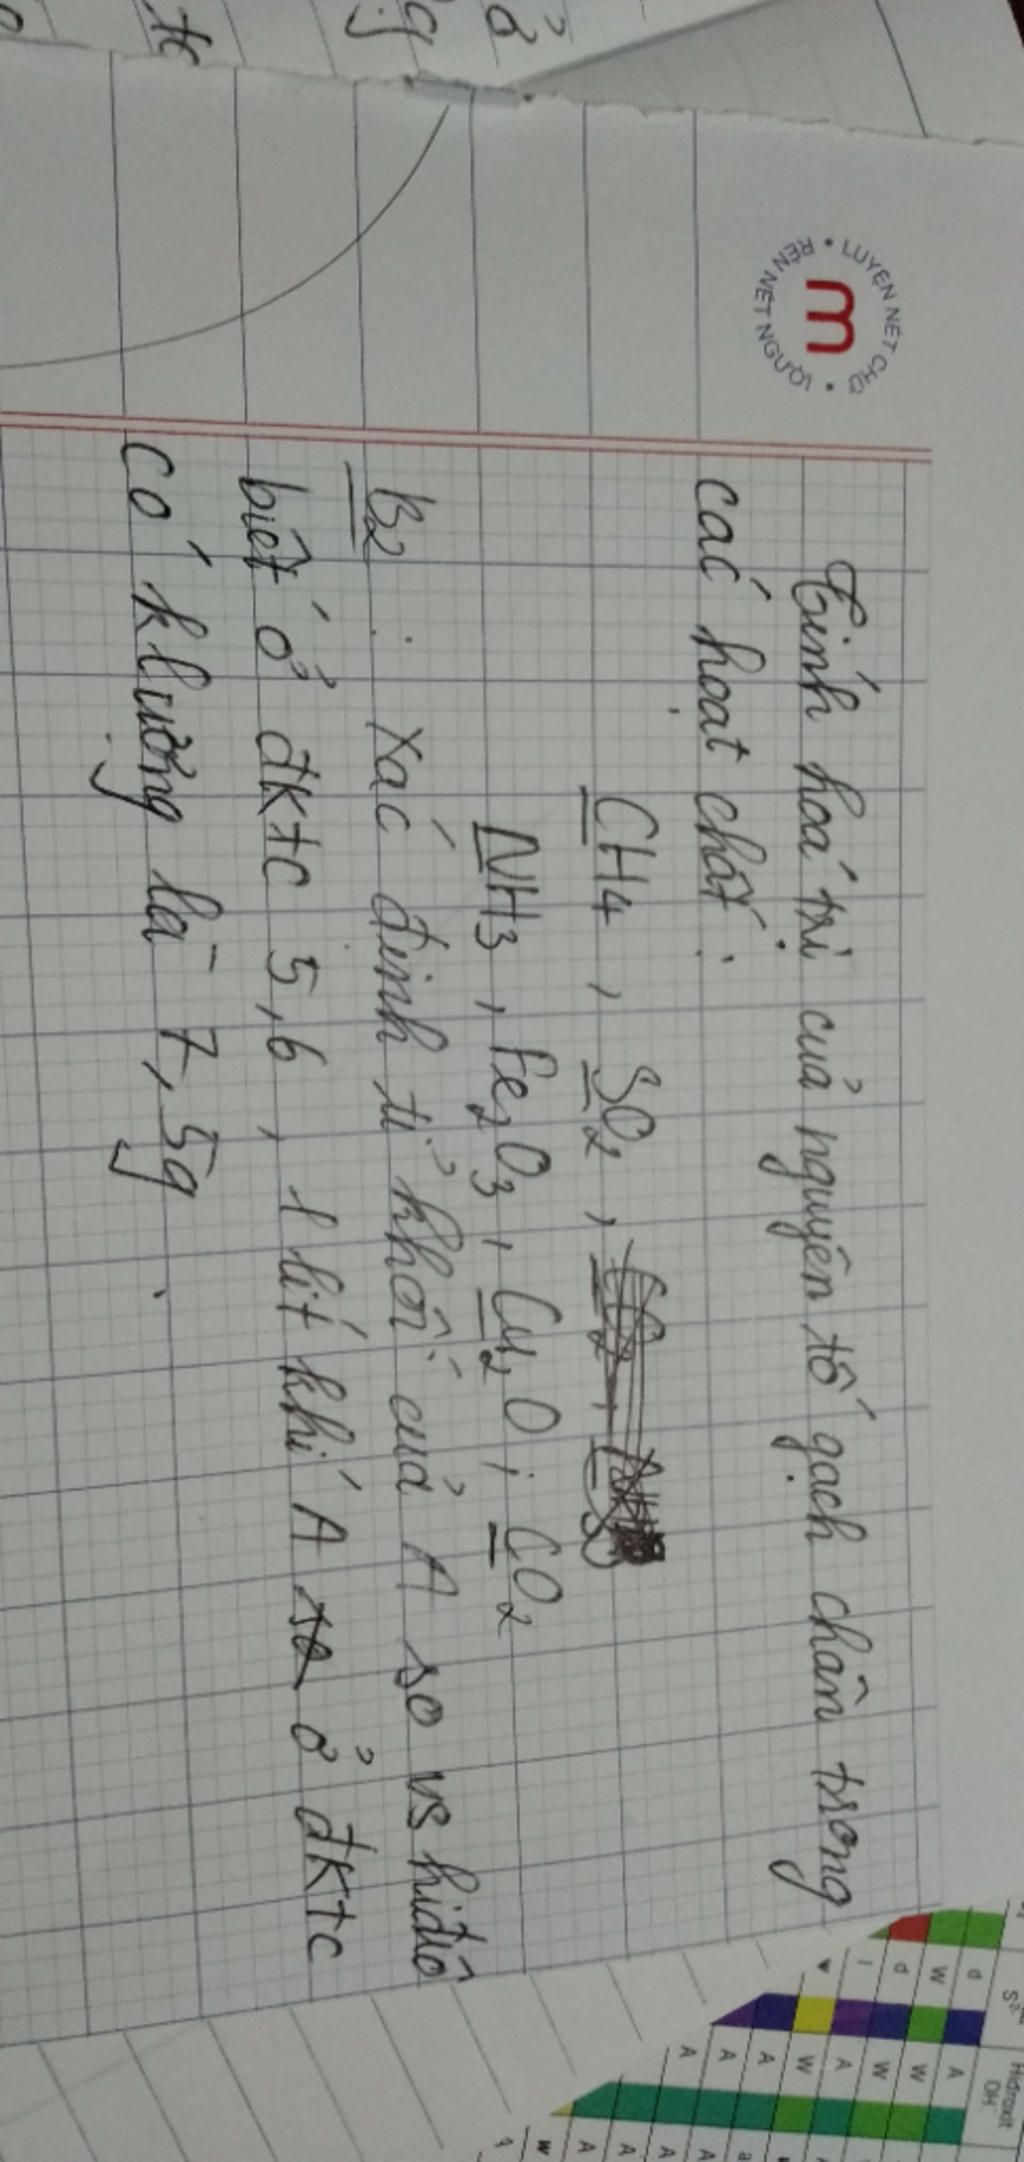 LUYỆN NÉT CHỮ • RÈN NÉT NGƯỜI •
m
Tính hoá trị của nguyên tố gạch chân trong
các hoạt chất :
CH4 , SO2 ,
NH3 , Fe2O3 , Cu2O ; CO2
B2 : Xác định tỉ khối của A so vs hiđrô
biết ở đktc 5,6 , 1 lít khí A ở đktc
có klượng là 7,5g .
Hiđroxit
OH⁻